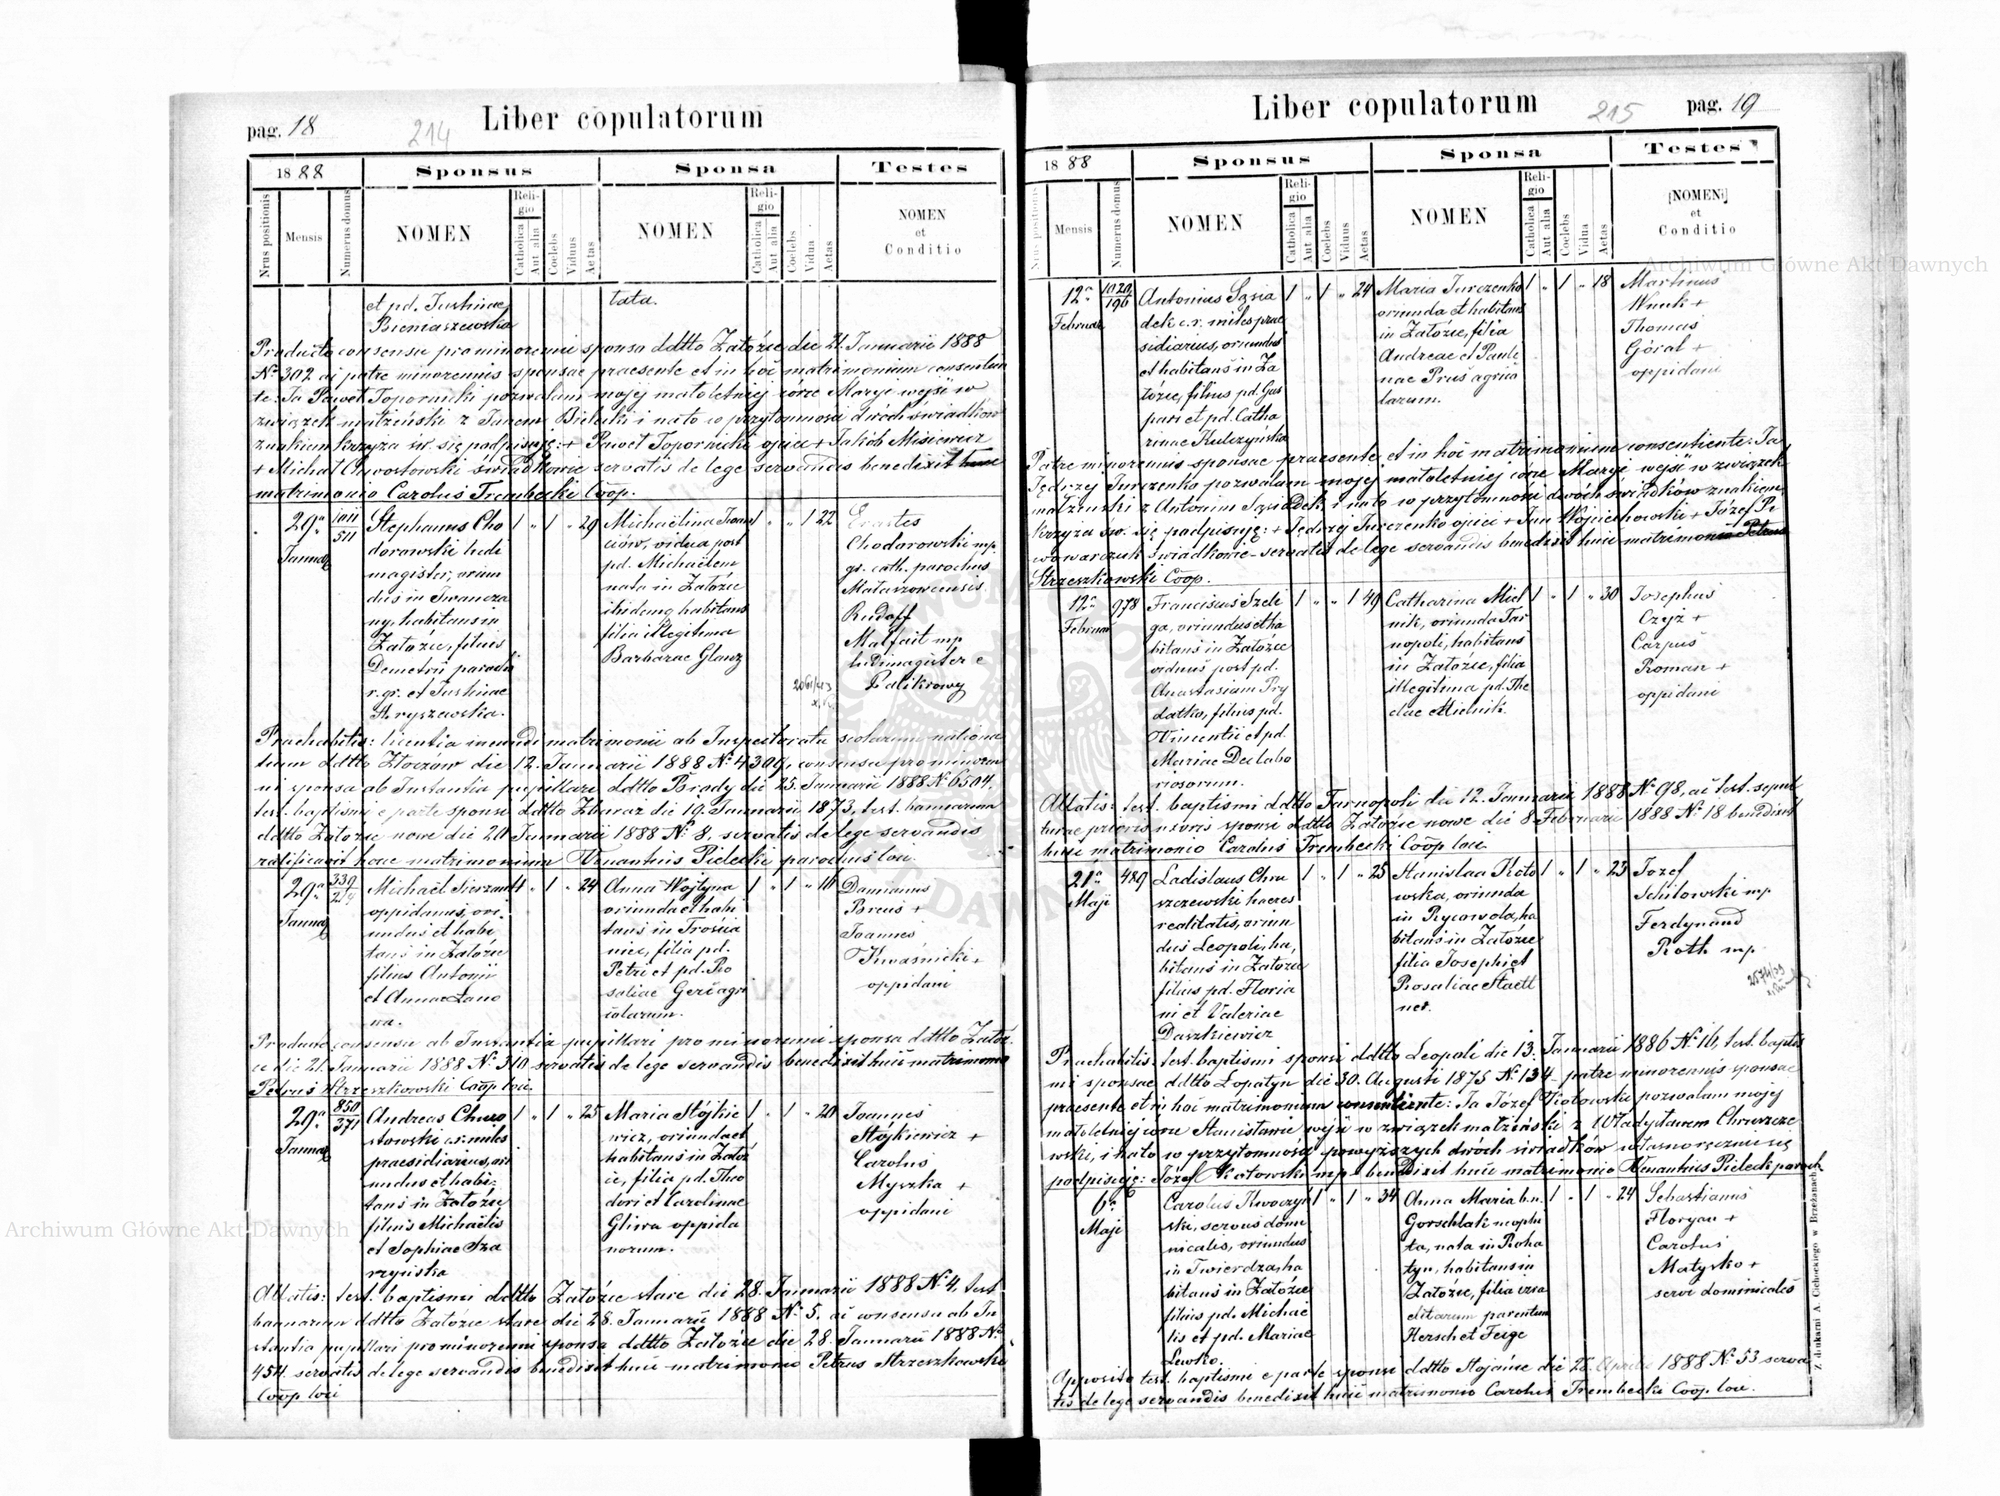 pag. 18
214
Liber copulatorum
1888
Sponsus
Sponsa
Testes
Nrus positionis
Mensis
Numerus domus
NOMEN
Religio
Catholica
Aut alia
Coelebs
Viduus
Aetas
NOMEN
Religio
Catholica
Aut alia
Coelebs
Vidua
Aetas
NOMEN
et
Conditio
et pd. Justinae
Bieniaszewska
tata.
Producto consensu pro minorenni sponso ddtto Załoźce die 21. Januarii 1888
No 302 ac patre minorennis sponsae praesente et in hoc matrimonium consentien
te: Ja Paweł Topornicki pozwalam mojej małoletniej córce Maryi wejść w
związek małżeński z Janem Bielecki i na to w przytomności dwóch świadków
znakiem krzyża św. się podpisuję: + Paweł Topornicki ojciec + Jakób Misiewicz
+ Michał Chwostowski świadkowie servatis de lege servandis benedixit huic
matrimonio Carolus Trembecki Coop.
29a
Januar
1011
511
Stephanus Cho
dorowski ludi
magister, oriun
dus in Iwancza
ny, habitans in
Załoźce, filius
Demetrii parochi
r. gr. et Justinae
Hryszewska.
1 " 1 " 29
Michaëlina Iwan
ciów, vidua post
pd. Michaëlem
nata in Załoźce
ibidemq habitans
filia illegitima
Barbarae Glanz
1 " " 1 22
Erastes
Chodorowski mp
gr. cath. parochus
Mataszowcensis
Rudolf
Malfait mp
ludimagister e
Palikrowy
Praehabitis: licentia ineundi matrimonii ab Inspectoratu scolarum nationa
lium ddtto Złoczów die 12. Januarii 1888 No 4309, consensu pro minoren
ni sponsa ab Instantia pupillari ddtto Brody die 25. Januarii 1888 No 6504.
test. baptismi e parte sponsi ddtto Zbaraz die 19. Januarii 1873, test. bannorum
ddtto Załoźce nowe die 20 Januarii 1888 No 8. servatis de lege servandis
ratificavit hoc matrimonium Venantius Pielecki parochus loci.
29a
Januar
339
Michaël Sierzant
oppidanus, ori
undus et habi
tans in Załoźce
filius Antonii
et Annae Lano
wa.
1 " 1 " 24
Anna Wojtyna
oriunda et habi
tans in Trościa
niec, filia pd.
Petri et pd. Ro
saliae Gerc agri
colarum.
1 " 1 " 16
Damianus
Breus +
Joannes
Kwaśnicki +
oppidani
Producto consensu ab Instantia pupillari pro minorenni sponsa ddtto Załoź
ce die 21. Januarii 1888 No 310 servatis de lege servandis benedixit huic matrimonio
Petrus Strzeszkowski Coop loci.
29a
Januar
850
371
Andreas Chwo
stowski c.r. miles
praesidiarius, ori
undus et habi
tans in Załoźce
filius Michaëlis
et Sophiae Sza
rzyńska
1 " 1 " 25
Maria Stójkie
wicz, oriunda et
habitans in Załoź
ce, filia pd. Theo
dori et Carolinae
Gliwa oppida
norum.
1 " 1 " 20
Joannes
Stójkiewicz +
Carolus
Myszka +
oppidani
Allatis: test. baptismi ddtto Załoźce stare die 28. Januarii 1888 No 4, test.
bannorum ddtto Załoźce stare die 28. Januarii 1888 No 5. ac consensu ab In
stantia pupillari pro minorenni sponsa ddtto Załoźce die 28. Januarii 1888 No
454. servatis de lege servandis benedixit huic matrimonio Petrus Strzeszkowski
Coop loci
Liber copulatorum
215
pag. 19
1888
Sponsus
Sponsa
Testes
Nrus positionis
Mensis
Numerus domus
NOMEN
Religio
Catholica
Aut alia
Coelebs
Viduus
Aetas
NOMEN
Religio
Catholica
Aut alia
Coelebs
Vidua
Aetas
NOMEN
et
Conditio
12a
Februar
1020
196
Antonius Sąsia
dek c.r. miles prae
sidiarius, oriundus
et habitans in Za
łoźce, filius pd. Gas
pari et pd. Catha
rinae Kulczyńska
1 " 1 " 24
Maria Jurczenko
oriunda et habitans
in Załoźce, filia
Andreae et Pauli
nae Prus agrico
larum.
1 " 1 " 18
Martinus
Wnuk +
Thomas
Góral +
oppidani
Patre minorennis sponsae praesente et in hoc matrimonium consentiente: Ja
Jędrzej Jurczenko pozwalam mojej małoletniej córce Maryi wejść w związek
małżeński z Antonim Sąsiadek i na to w przytomności dwóch świadków znakiem
krzyża św. się podpisuję: + Jędrzej Jurczenko ojciec + Jan Wojciechowski + Józef Pi
wowarczuk świadkowie servatis de lege servandis benedixit huic matrimonio Petrus
Strzeszkowski Coop.
12a
Februar
978
Franciscus Szeli
ga, oriundus et ha
bitans in Załoźce
viduus post pd.
Anastasiam Pry
datko, filius pd.
Vincentii et pd.
Mariae Dec labo
riosorum.
1 " " 1 49
Catharina Miel
nik, oriunda Tar
nopoli, habitans
in Załoźce, filia
illegitima pd. The
clae Mielnik.
1 " 1 " 30
Josephus
Czyż +
Carpus
Roman +
oppidani
Allatis: test. baptismi ddtto Tarnopoli die 12. Januarii 1888 No 98, ac test. sepul
turae prioris uxoris sponsi ddtto Załoźce nowe die 8 Februarii 1888 No 18 benedixit
huic matrimonio Carolus Trembecki Coop loci
21a
Maji
489
Ladislaus Chru
szczewski haeres
realitatis, oriun
dus Leopoli, ha
bitans in Załoźce
filius pd. Floria
ni et Valeriae
Daszkiewicz
1 " 1 " 25
Stanislaa Koto
wska, oriunda
in Rycarvola, ha
bitans in Załoźce
filia Josephi et
Rosaliae Staett
ner.
1 " 1 " 23
Józef
Schilowski mp
Ferdynand
Roth mp
Praehabitis: test. baptismi sponsi ddtto Leopoli die 13. Januarii 1886 No 16, test. baptis
mi sponsae ddtto Łopatyn die 30. Augusti 1875 No 134 patre minorennis sponsae
praesente et in hoc matrimonium consentiente: Ja Józef Kotowski pozwalam mojej
małoletniej córce Stanisławie wejść w związek małżeński z Władysławem Chruszcze
wski, i na to w przytomności powyższych dwóch świadków własnoręcznie się
podpisuję: Józef Kotowski mp benedixit huic matrimonio Venantius Pielecki paroch
6a
Maji
Carolus Kwoczyń
ski, servus domi
nicalis, oriundus
in Twierdza, ha
bitans in Załoźce
filius pd. Michaë
lis et pd. Mariae
Lewko.
1 " 1 " 34
Anna Maria b.n.
Gorschlak neophi
ta, nata in Roha
tyn, habitans in
Załoźce, filia isra
elitarum parentum
Hersch et Feige
1 " 1 " 24
Sebastianus
Floryan +
Carolus
Matysko +
servi dominicales
Apposito test. baptismi e parte sponsi ddtto Stojańce die 25. Aprilis 1888 No 53 serva
tis de lege servandis benedixit huic matrimonio Carolus Trembecki Coop loci.
Z drukarni A. Cichockiego w Brzeżanach
Archiwum Główne Akt Dawnych
Archiwum Główne Akt Dawnych